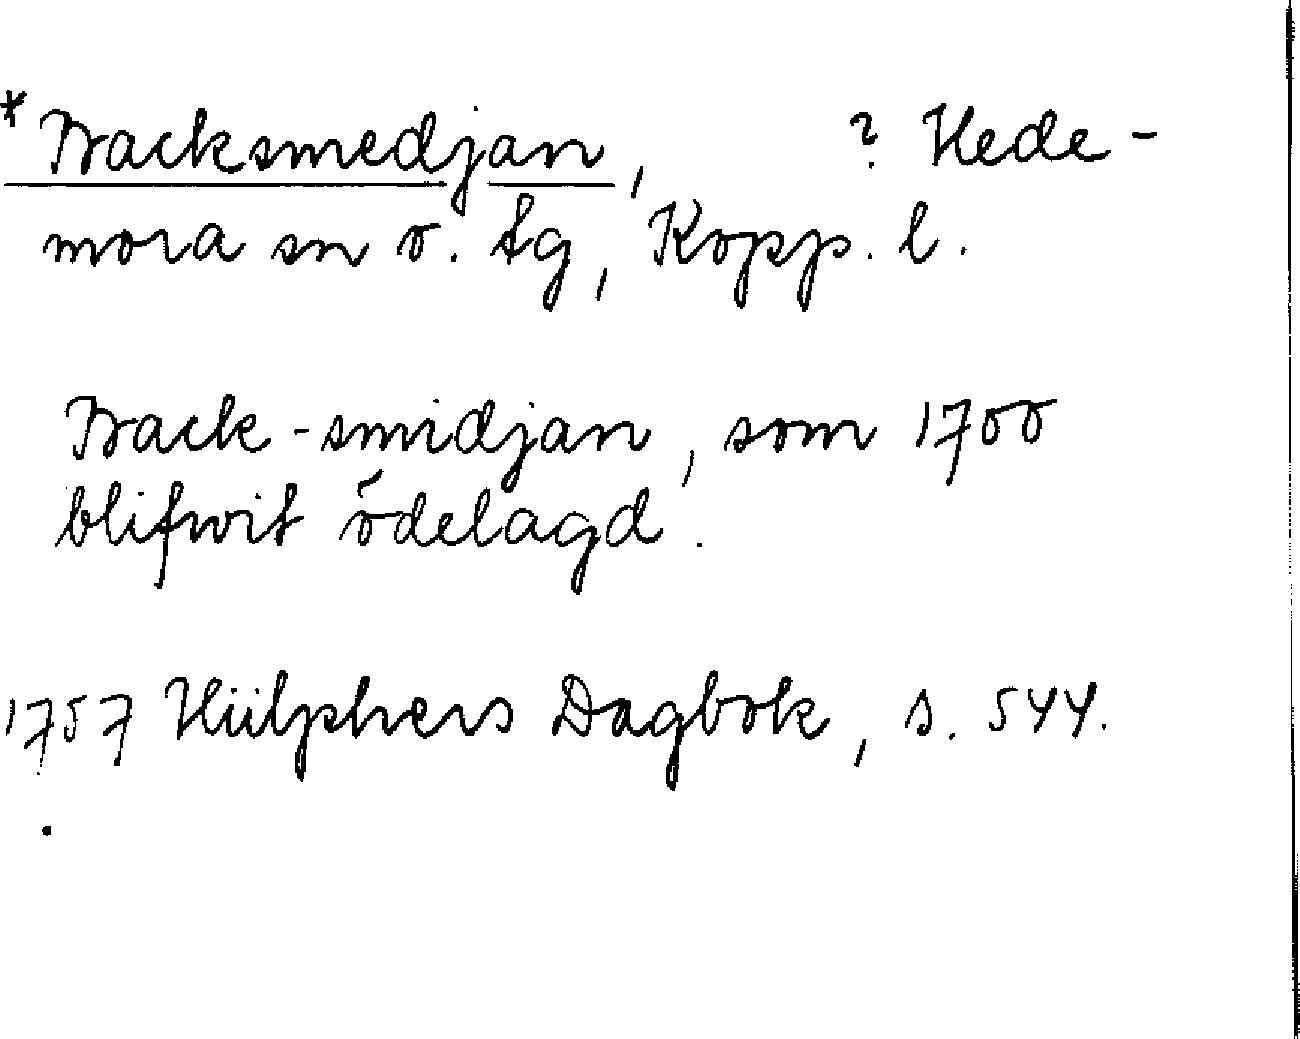 * Backsmedjan, ? Hede-
mora sn o. tg, Kopp. l.
Back-smidjan, som 1700
blifwit ödelagd.
1757 Hülphers Dagbok, s. 544.